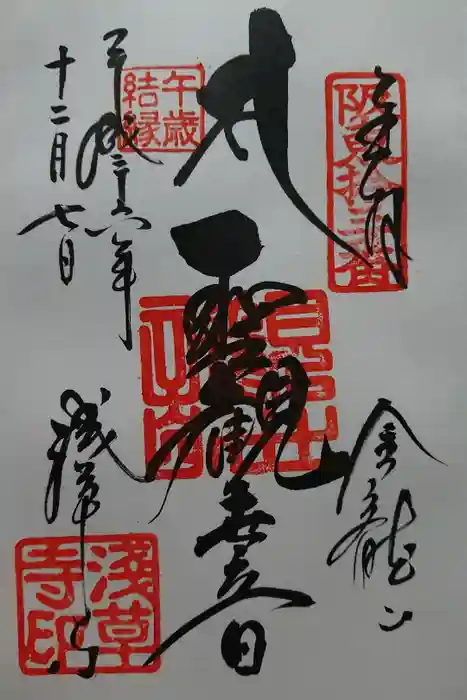 奉拝
阪東拾三番
金龍山
聖観世音
午歳
結縁
平成二六年
十二月七日
浅草寺
淺草
寺印